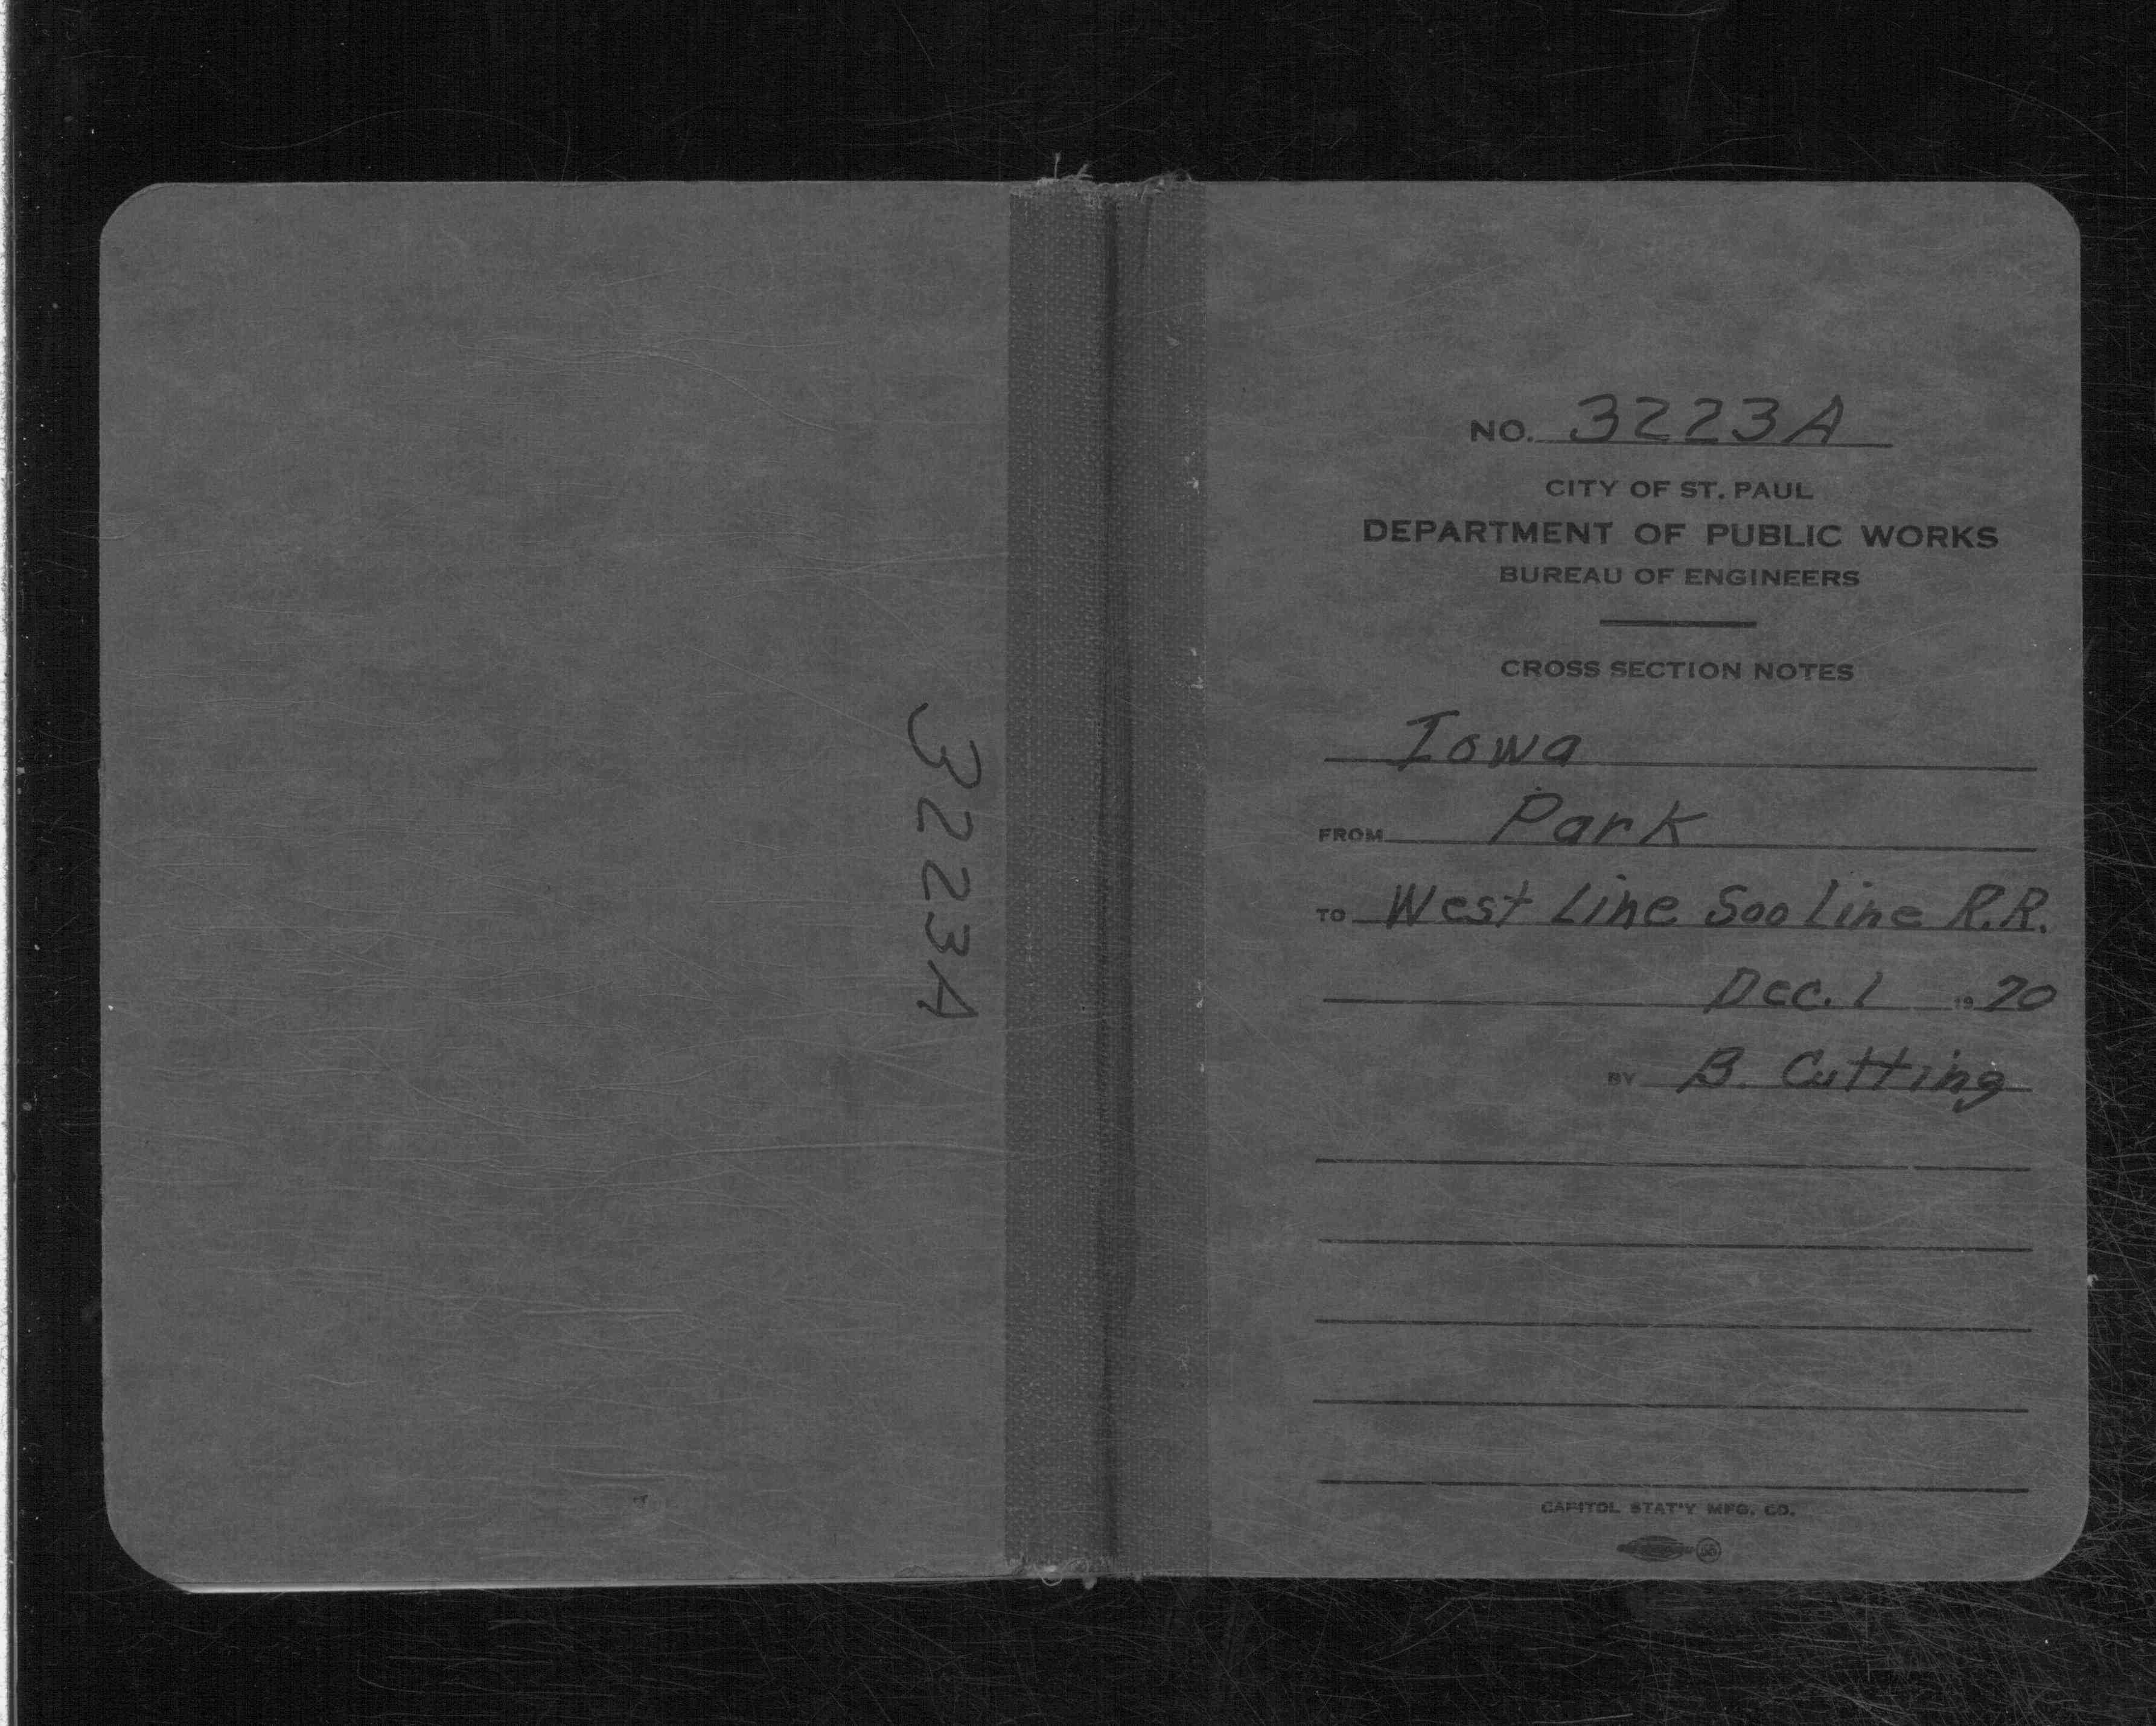 3223A
NO. 3223A
CITY OF ST. PAUL
DEPARTMENT OF PUBLIC WORKS
BUREAU OF ENGINEERS
CROSS SECTION NOTES
Iowa
FROM Park
TO West Line Soo Line R.R.
Dec. 1 1970
BY B. Cutting
CAPITOL STAT'Y MFG. CO.